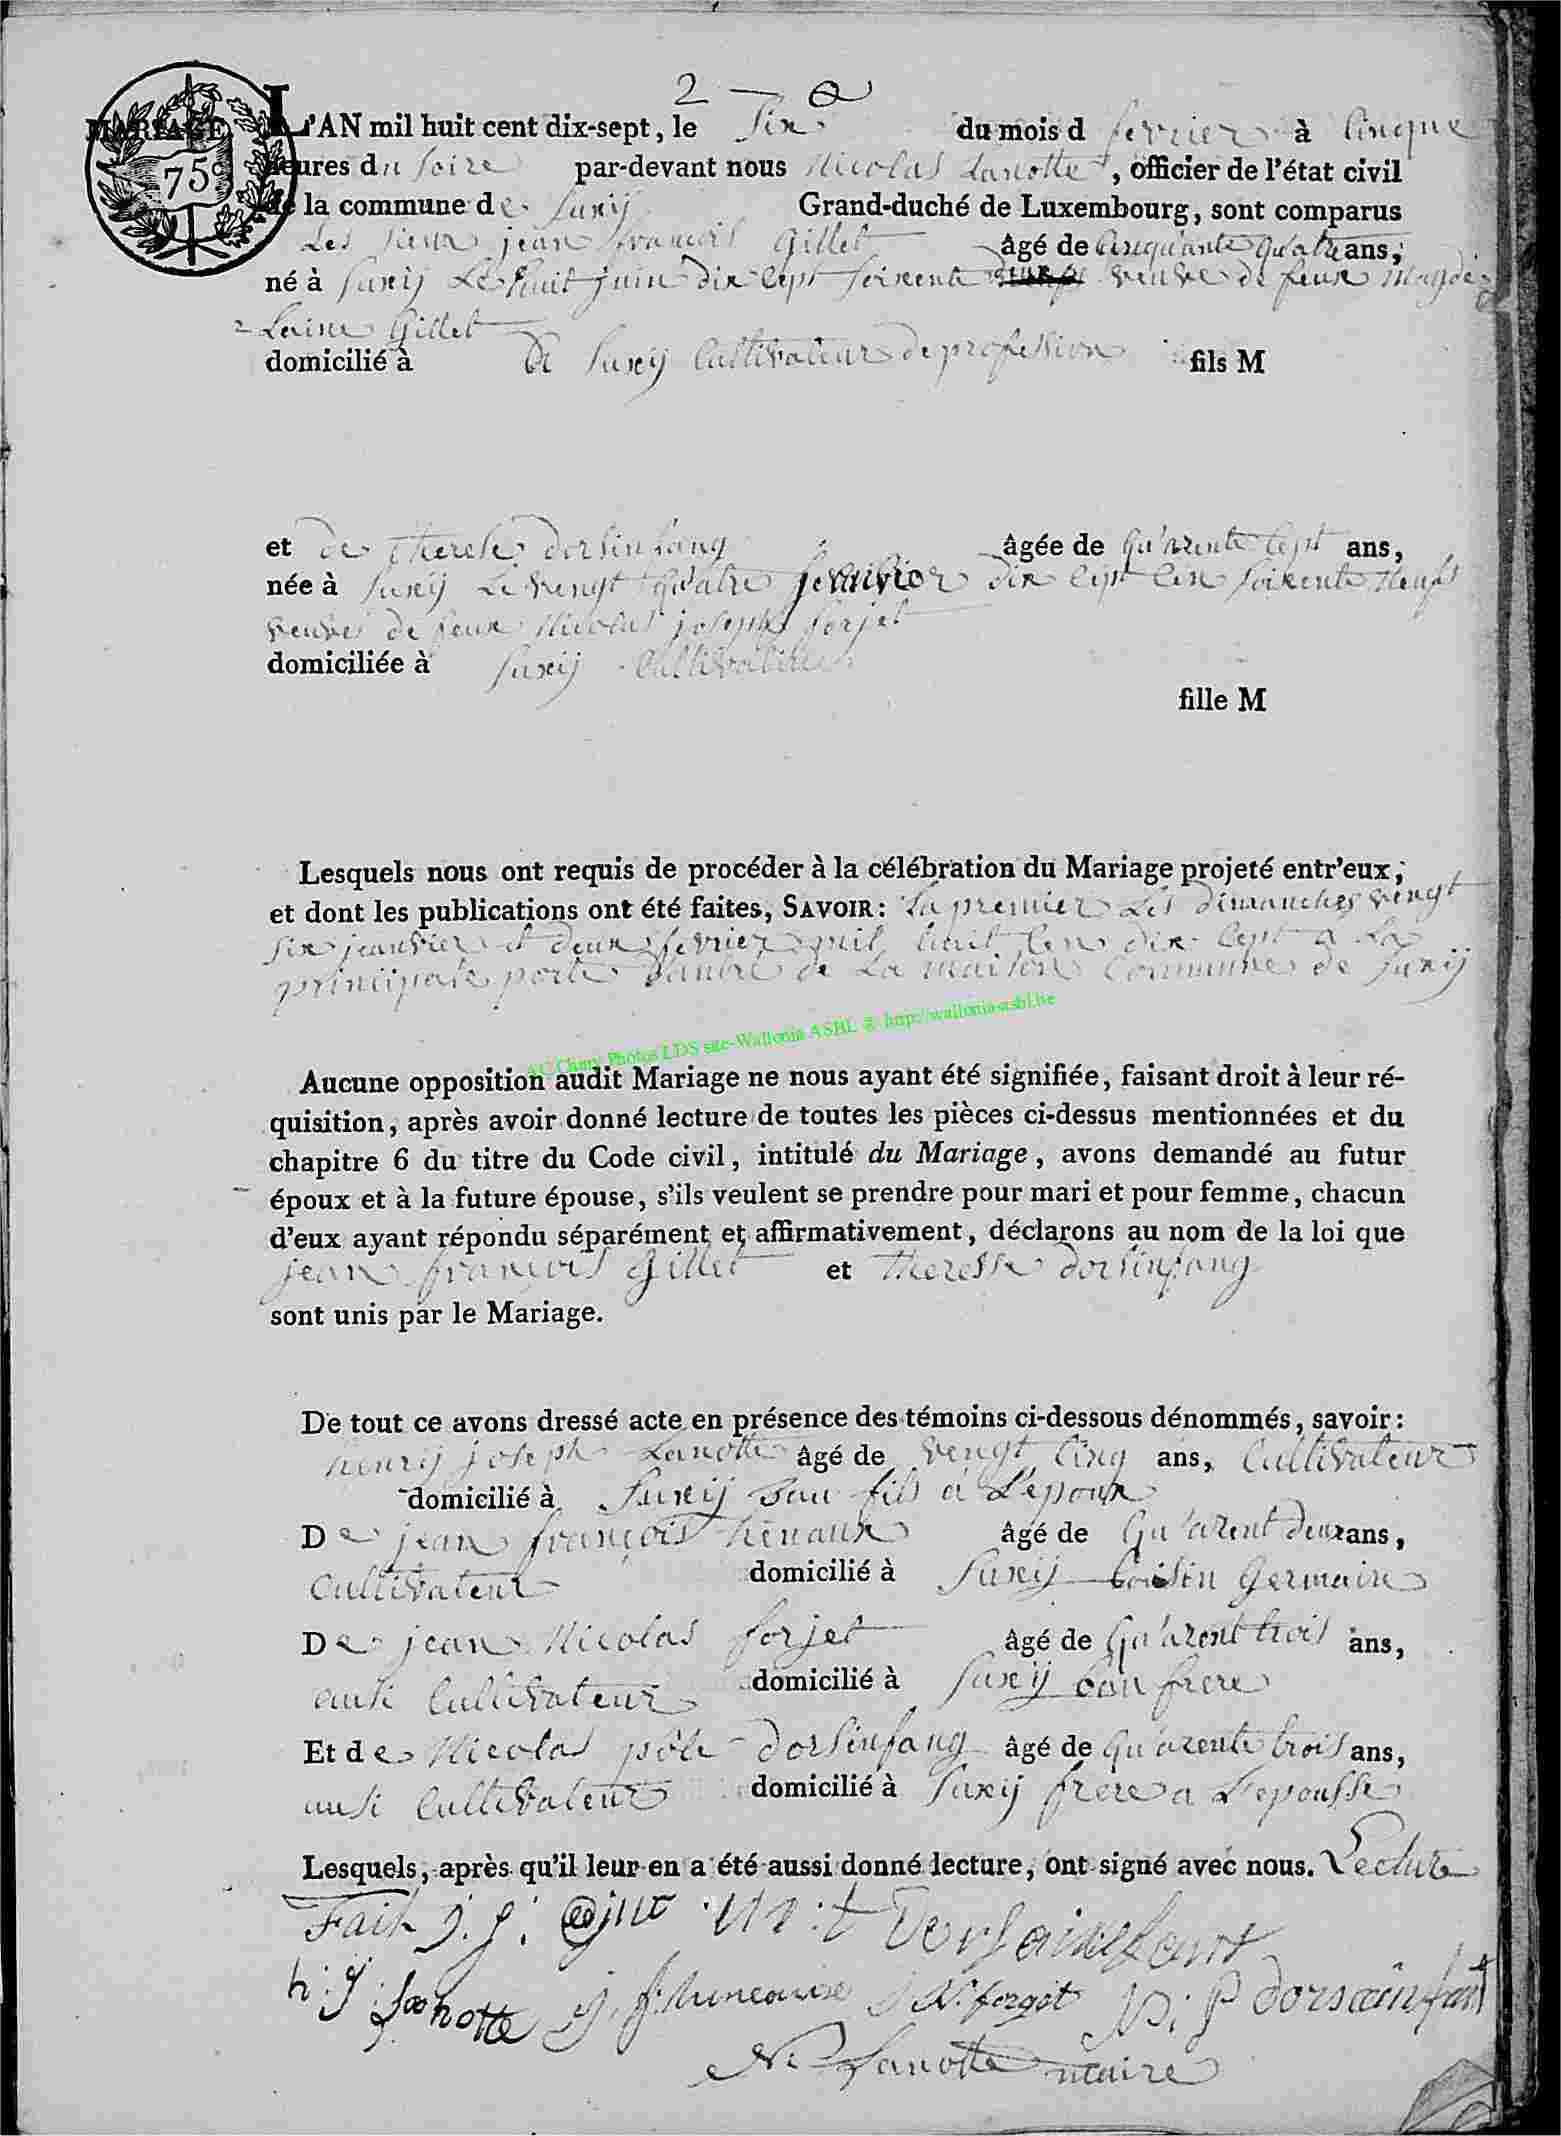 2
MARIAGE
75c
L'AN mil huit cent dix-sept, le Six du mois d fevrier à Cinque
heures du Soire par-devant nous Nicolas Lanotte, officier de l'état civil
de la commune de Suxÿ Grand-duché de Luxembourg, sont comparus
Les Sieur jean françois Gillet âgé de Cinquante quatre ans;
né à Suxÿ Le huit juin dix Sept Soixente veuve de feux magde
Laine Gillet
domicilié à de Suxÿ Cultivateur de profession fils M
et de Therese dorsinfang âgée de qu'arente Sept ans,
née à Suxÿ Le vengt quatre dix Sept Cen Soixente Neufs
veuve de feux Nicolas joseph forjet
domiciliée à Suxÿ Cultivatrice
fille M
Lesquels nous ont requis de procéder à la célébration du Mariage projeté entr'eux;
et dont les publications ont été faites, SAVOIR: La premier Les dimanches vengt
Six jeanvier et deux fevrier mil huit Cen dix Sept a La
principale porte d'antré de La maison Commune de Suxÿ
AC Chiny Photos LDS site-Wallonia ASBL @ http://wallonia-asbl.be
Aucune opposition audit Mariage ne nous ayant été signifiée, faisant droit à leur ré-
quisition, après avoir donné lecture de toutes les pièces ci-dessus mentionnées et du
chapitre 6 du titre du Code civil, intitulé du Mariage, avons demandé au futur
époux et à la future épouse, s'ils veulent se prendre pour mari et pour femme, chacun
d'eux ayant répondu séparément et affirmativement, déclarons au nom de la loi que
jean françois Gillet et theresse dorsinfang
sont unis par le Mariage.
De tout ce avons dressé acte en présence des témoins ci-dessous dénommés, savoir:
henrÿ joseph Lanotte âgé de vengt Cinq ans, Cultivateur
domicilié à Suxÿ bau fils a L'epoux
De jean françois henaux âgé de qu'arent deux ans,
Cultivateur domicilié à Suxÿ Coisin Germain
De jean Nicolas forjet âgé de qu'arent trois ans,
ausi Cultivateur domicilié à Suxÿ bau frere
Et de Nicolas pôle Dorsinfang âgé de qu'arente trois ans,
ausi Cultivateur domicilié à Suxÿ frere a L'epousse
Lesquels, après qu'il leur en a été aussi donné lecture, ont signé avec nous. Lecture
Fait j. f.
h: j Lanotte j. f. j N. forget N: P dorsainfant
N: Lanotte maire